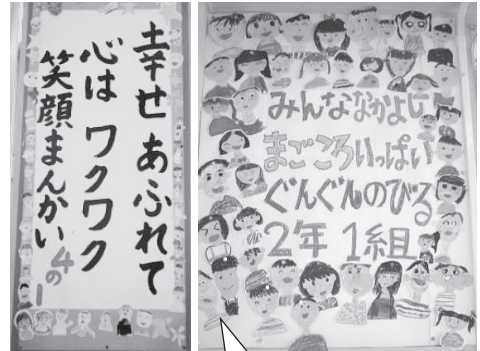 幸せ あふれて
心は ワクワク
笑顔まんかい
4の1
みんななかよし
まごころいっぱい
ぐんぐんのびる
2年 1組